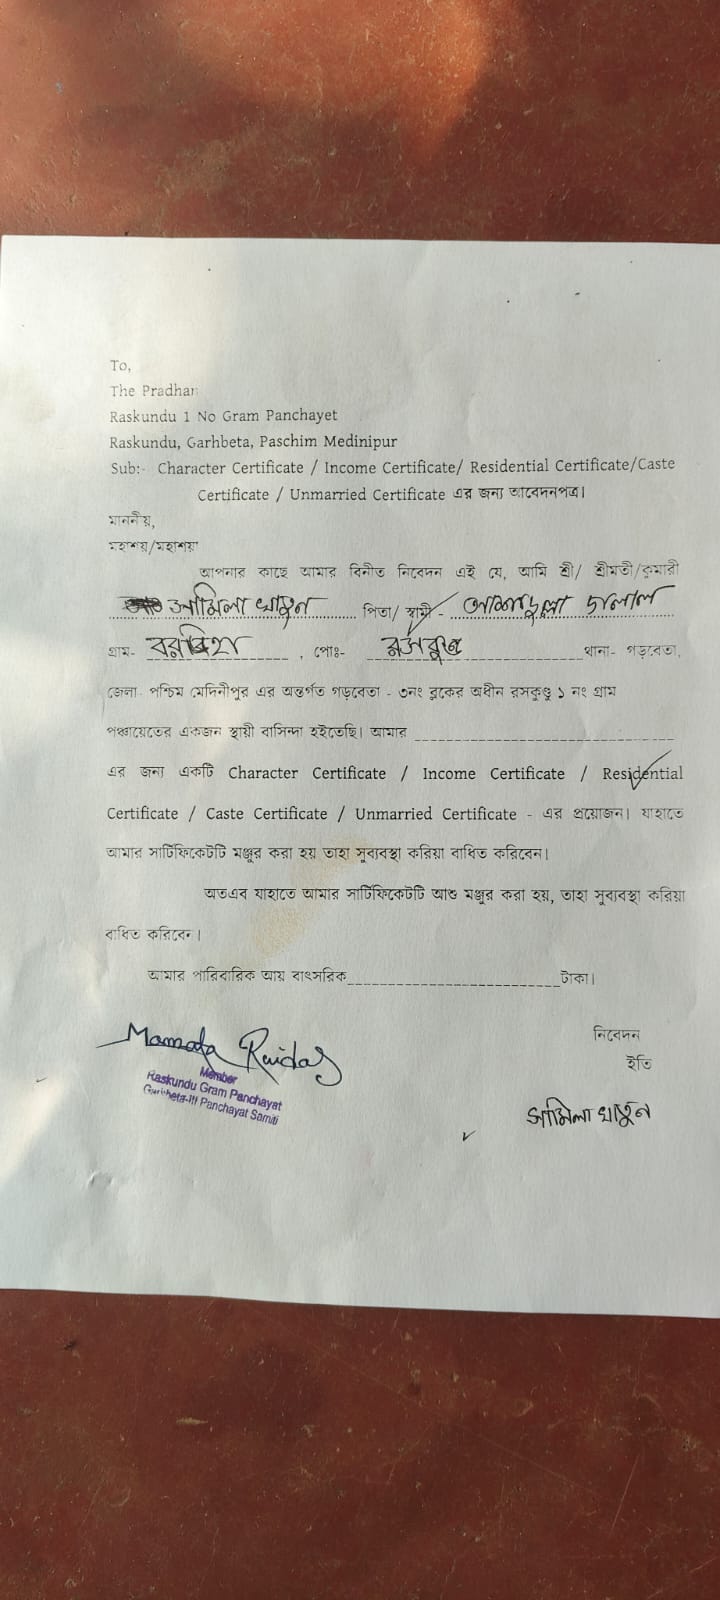 To,
The Pradhan
Raskundu 1 No Gram Panchayet
Raskundu, Garhbeta, Paschim Medinipur
Sub:- Character Certificate / Income Certificate/ Residential Certificate/Caste
Certificate / Unmarried Certificate এর জন্য আবেদনপত্র।
মাননীয়,
মহাশয়/মহাশয়া
আপনার কাছে আমার বিনীত নিবেদন এই যে, আমি শ্রী/ শ্রীমতী/কুমারী
খাতুন পিতা/ স্বামী - জালাল
গ্রাম- , পোঃ- রসকুন্ডু থানা- গড়বেতা,
জেলা- পশ্চিম মেদিনীপুর এর অন্তর্গত গড়বেতা - ৩নং ব্লকের অধীন রসকুণ্ডু ১ নং গ্রাম
পঞ্চায়েতের একজন স্থায়ী বাসিন্দা হইতেছি। আমার
এর জন্য একটি Character Certificate / Income Certificate / Residential
Certificate / Caste Certificate / Unmarried Certificate - এর প্রয়োজন। যাহাতে
আমার সার্টিফিকেটটি মঞ্জুর করা হয় তাহা সুব্যবস্থা করিয়া বাধিত করিবেন।
অতএব যাহাতে আমার সার্টিফিকেটটি আশু মঞ্জুর করা হয়, তাহা সুব্যবস্থা করিয়া
বাধিত করিবেন।
আমার পারিবারিক আয় বাৎসরিক টাকা।
নিবেদন
ইতি
Mamata Ruidas
Member
Raskundu Gram Panchayat
Garhbeta-III Panchayat Samiti
খাতুন